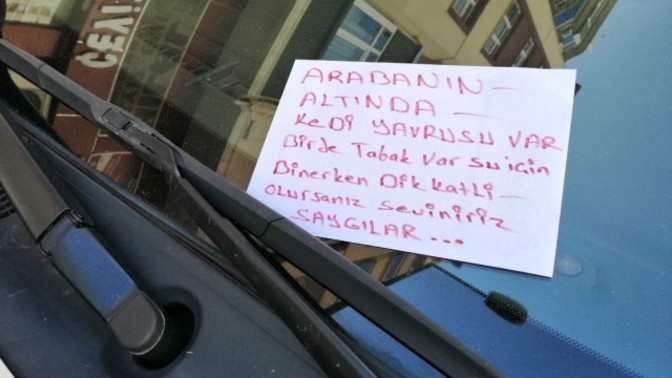 ARABANIN -
ALTINDA -
KEDİ YAVRUSU VAR
Birde Tabak var su için
Binerken Dikkatli -
OLURSANIZ seviniriz
SAYGILAR ...